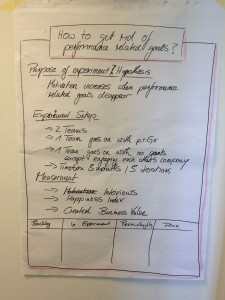 How to get rid of
performance related goals?
Purpose of experiment / Hypothesis
Motivation increases when performance
related goals disappear
Experiment Setup
→ 2 Teams
→ 1 Team goes on with prGs
→ 1 Team goes on with no goals
except enjoying each other's company
→ Timebox 3 months / 5 iterations
Measurement
→ Interviews
→ Happiness Index
→ Created Business Value
Backlog in Experiment Done